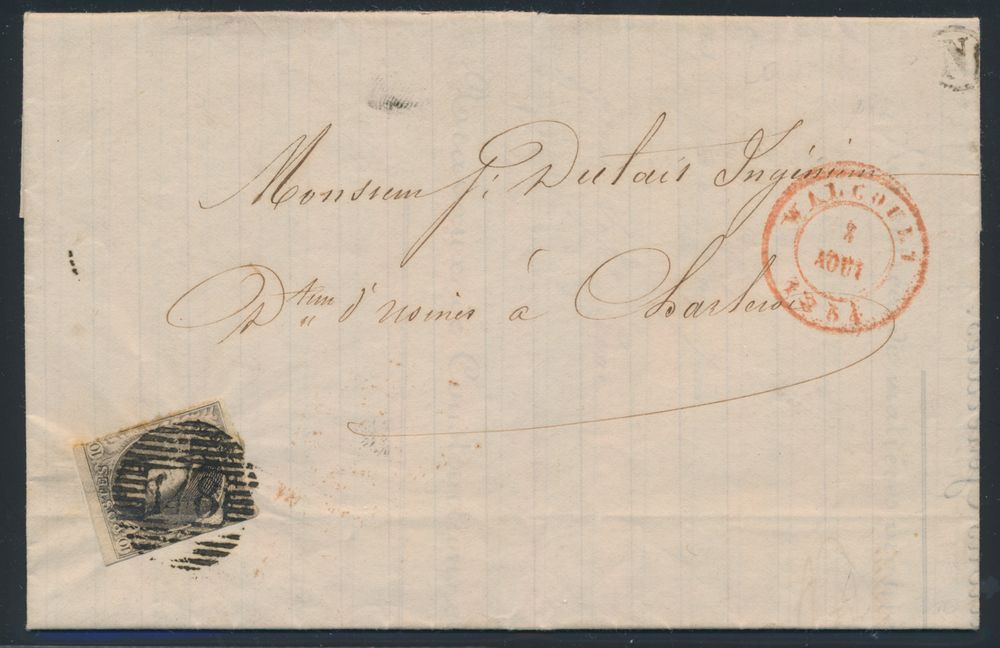 N
Monsieur J: Dulait Ingénieur
D.teur d'usines à Charleroi
WALCOURT
8
AOUT
1854
10
10